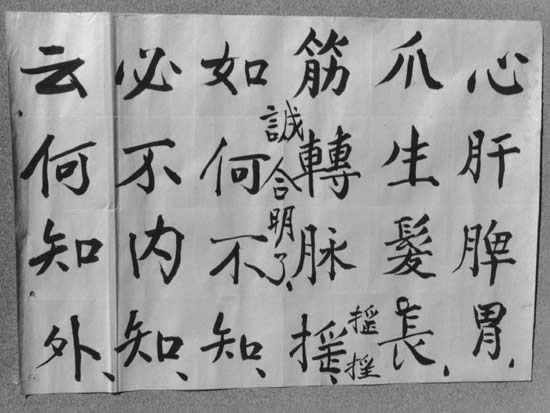 心肝脾胃、
爪生髮長、
摇摇
筋轉脉摇、
誠合明了、
如何不知、
必不内知、
云何知外、